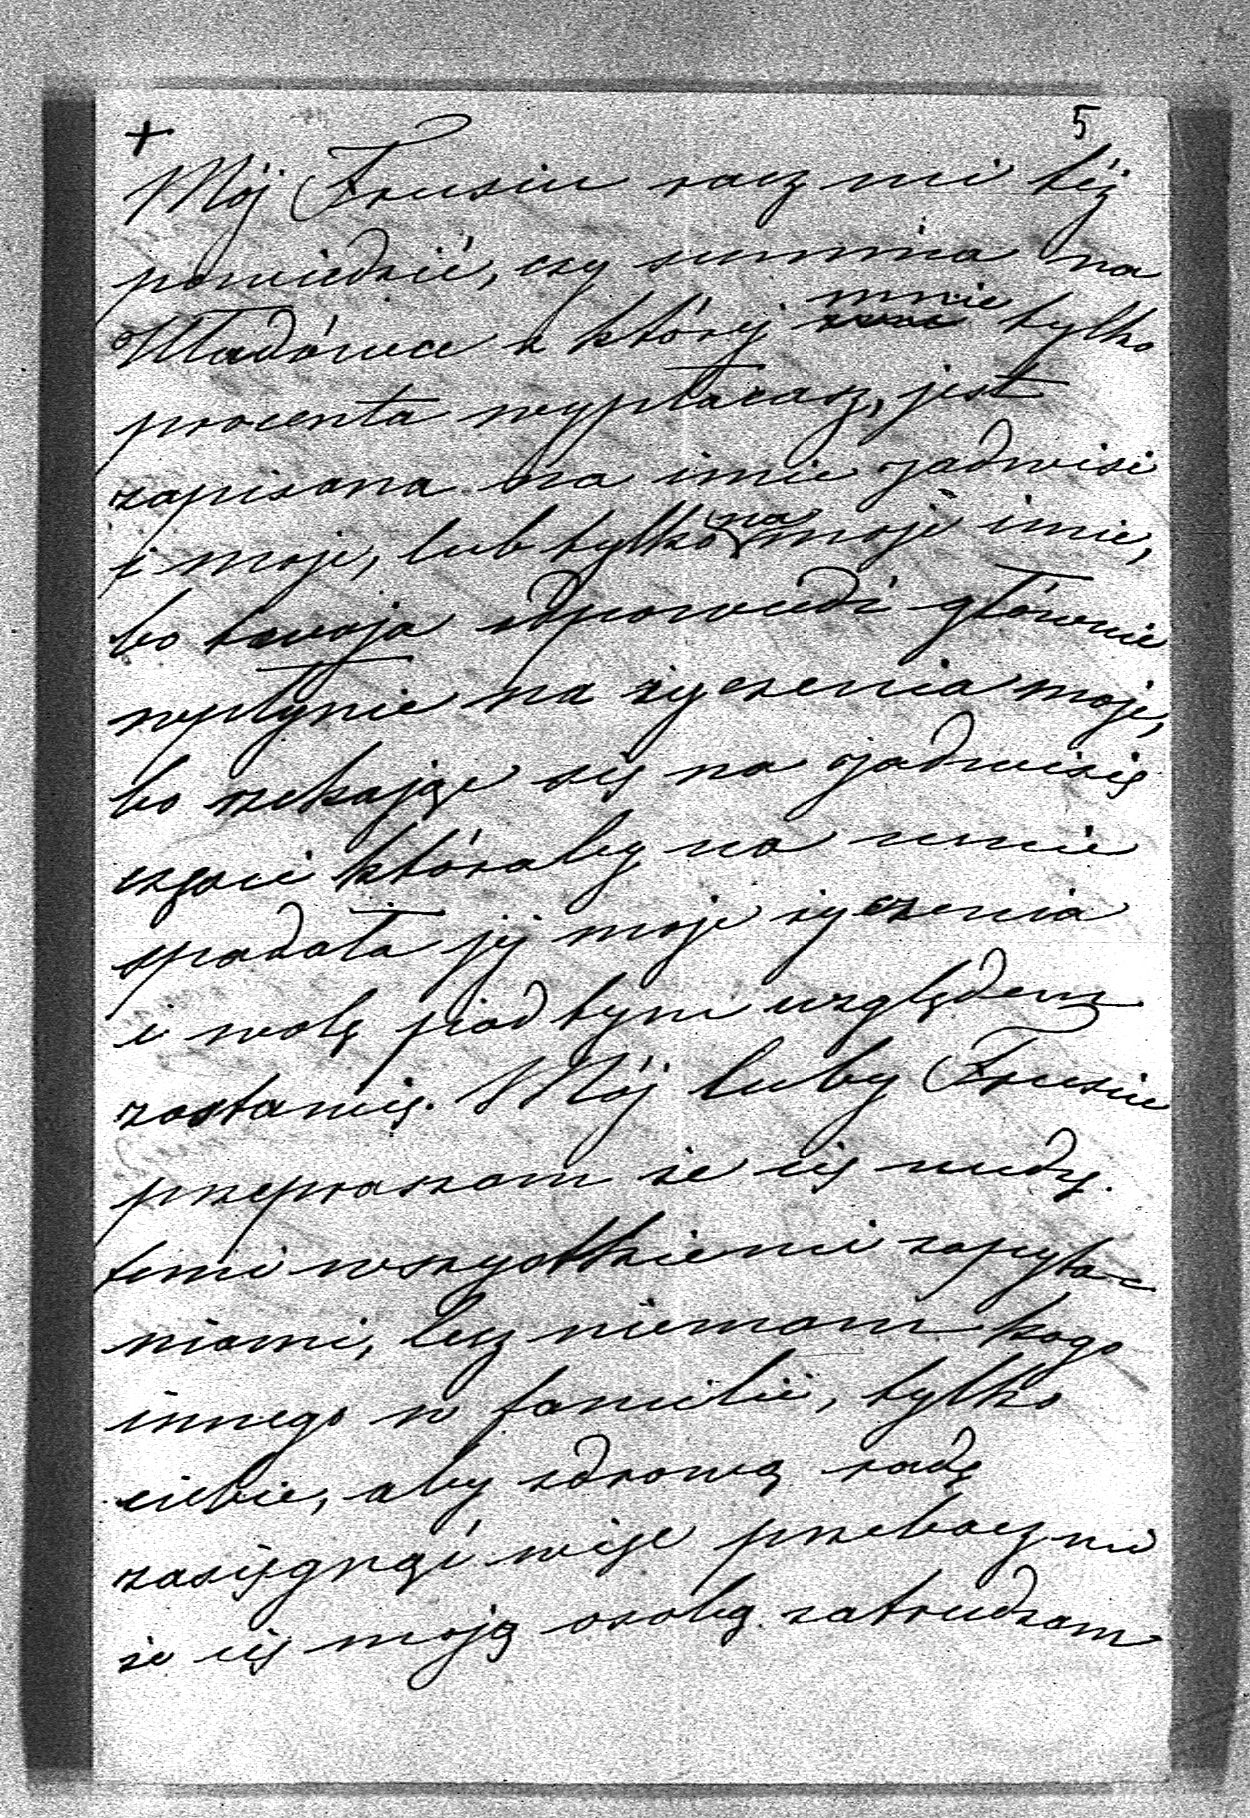 + 5
Mój Frusiu racz mi téż
powiedzić, czy summa na
Władówce z któréj mnie tylko
procenta wypłacasz, jest
zapisana na imie Jadwisi
i moje, lub tylko na moje imie,
bo twoja odpowiedź głównie
wpłynie na życzenia moje,
bo zrzekając się na Jadwisię
części któraby na mnie
spadała jéj moje życzenia
i wolę pod tym względem
zostawię. Mój luby Frusiu
przepraszam że cię nudzę
temi wszystkiemi zapyta-
niami, lecz niemam kogo
innego w familii, tylko
ciebie, aby zdrową radę
zasięgnąć więc przebacz mi
że cię moją osobą zatrudzam